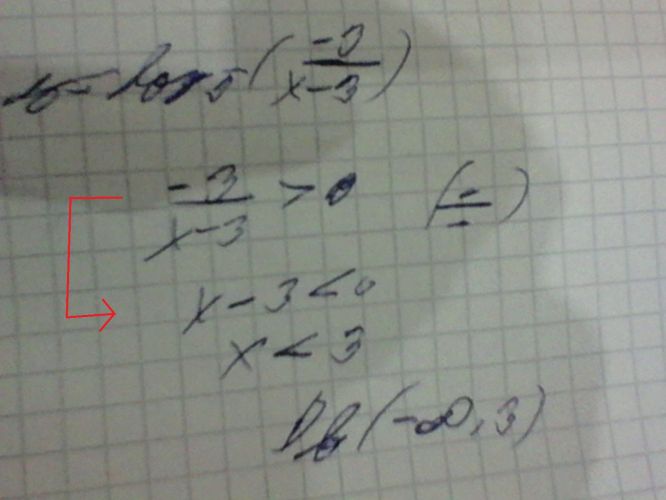 y = log 5 ( -3 / x-3 )
-3 / x-3 > 0 ( - / - )
x - 3 < 0
x < 3
(-∞, 3)